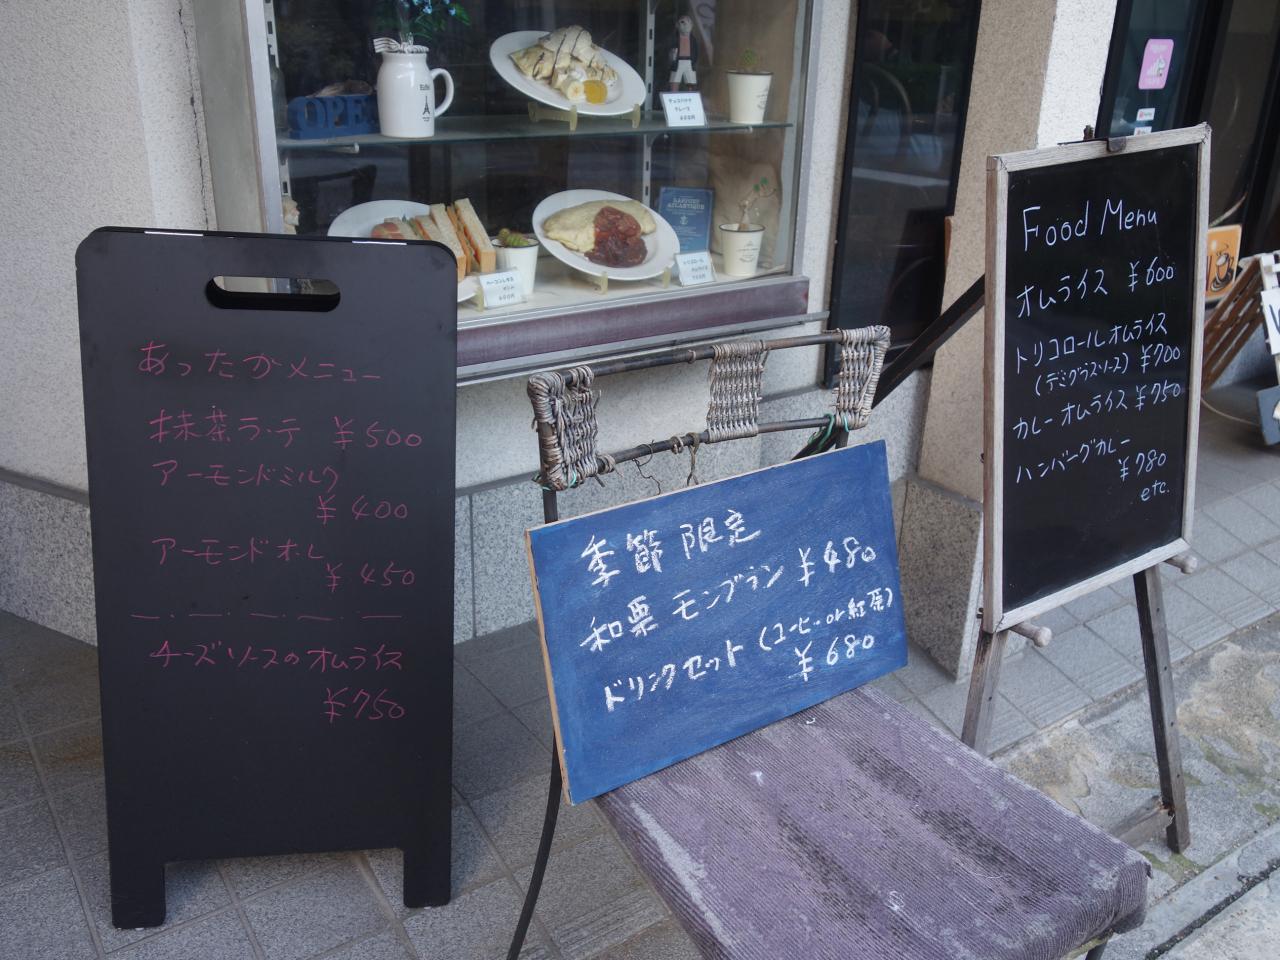 あったかメニュー
抹茶ラ・テ ¥500
アーモンドミルク
¥400
アーモンドオ・レ
¥450
チーズソースのオムライス
¥750
季節限定
和栗 モンブラン ¥480
ドリンクセット (コーヒー or 紅茶)
¥680
Food Menu
オムライス ¥600
トリコロールオムライス
(デミグラスソース) ¥700
カレーオムライス ¥750
ハンバーグカレー
¥780
etc.
OPEN
チョコバナナ
クレープ
トリコロール
オムライス